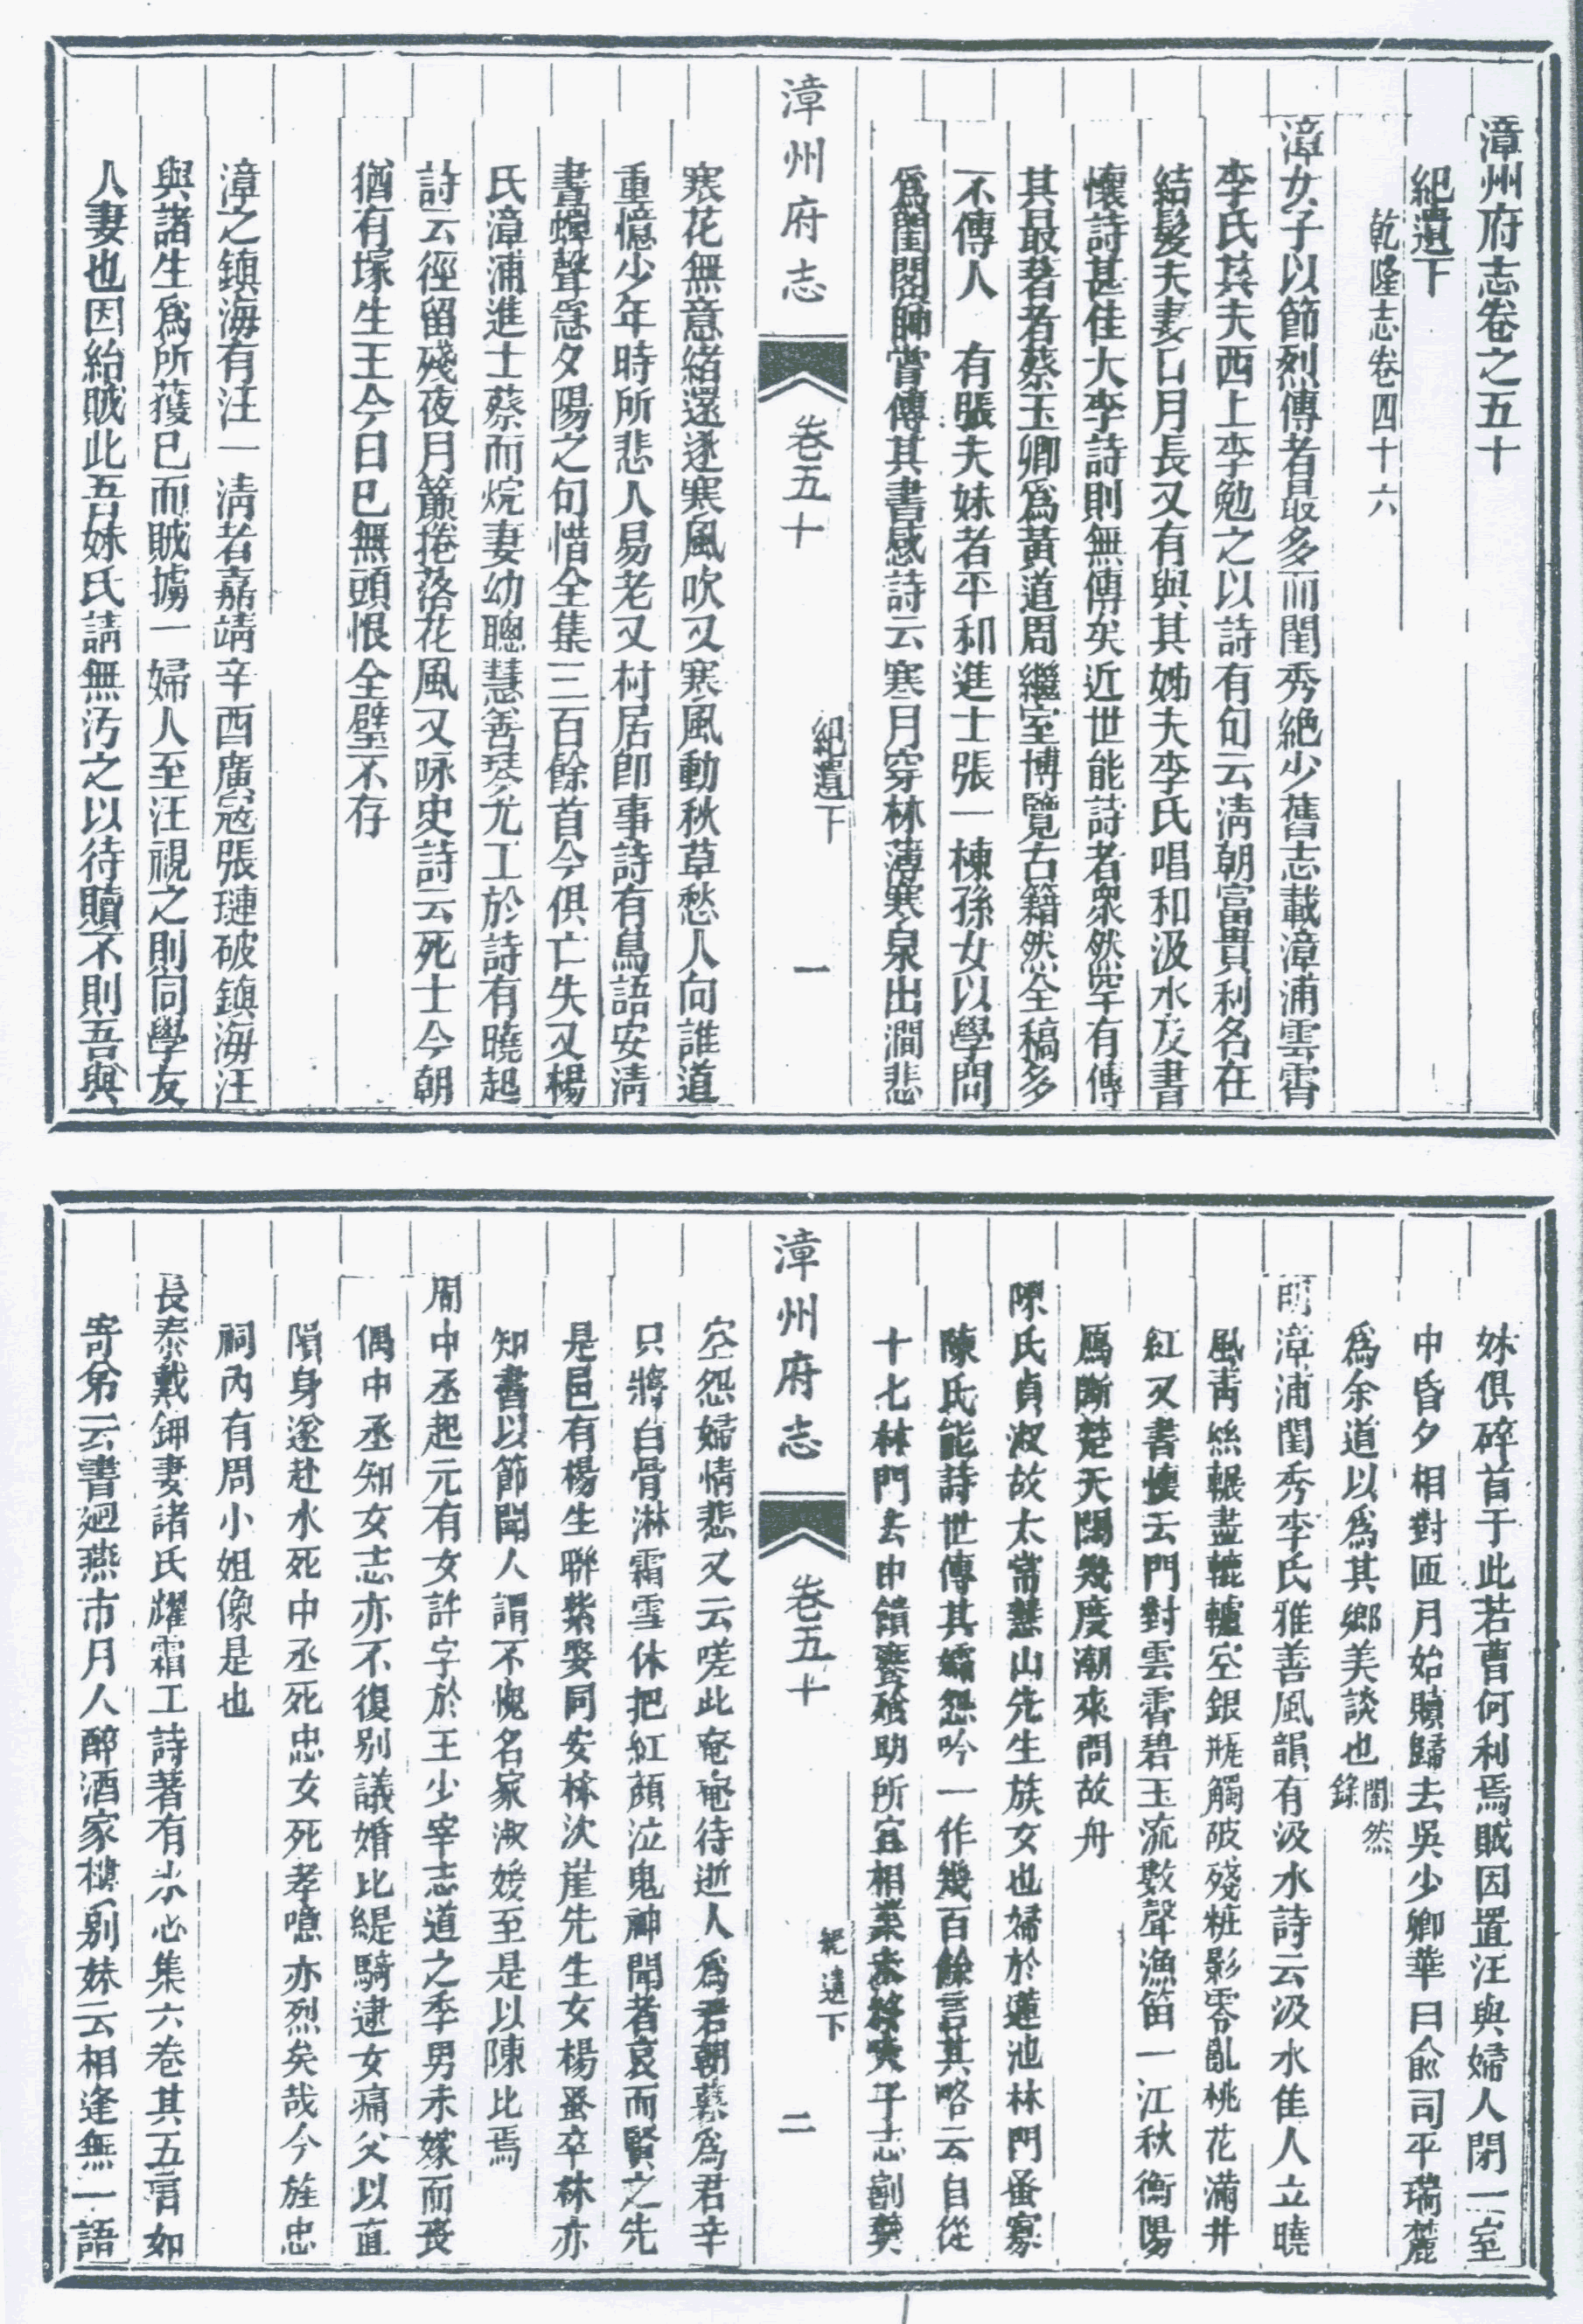 漳州府志卷之五十
紀遺下
乾隆志卷四十六
漳女子以節烈傳者最多而閨秀絶少舊志載漳浦雲霄
李氏其夫西上李勉之以詩有句云淸朝富貴利名在
結髮夫妻日月長又有與其姊夫李氏唱和汲水及書
懷詩甚佳大李詩則無傳矣近世能詩者衆然罕有傳
其最著者蔡玉卿爲黃道周繼室博覽古籍然全稿多
不傳人 有張夫妹者平和進士張一棟孫女以學問
爲閨閣師嘗傳其書感詩云寒月穿林薄寒泉出澗悲
漳州府志 卷五十 紀遺下 一
寒花無意緒還逐寒風吹又寒風動秋草愁人向誰道
重憶少年時所悲人易老又村居卽事詩有鳥語安淸
晝蟬聲急夕陽之句惜全集三百餘首今俱亡失又楊
氏漳浦進士蔡而烷妻幼聰慧善琴尤工於詩有曉起
詩云徑留殘夜月簾捲落花風又咏史詩云死士今朝
猶有塚生王今日已無頭恨全璧不存
漳之鎮海有汪一淸者嘉靖辛酉廣寇張璉破鎮海汪
與諸生爲所獲已而賊擄一婦人至汪視之則同學友
人妻也因紿賊此吾妹氏請無汚之以待贖不則吾與
妹俱碎首于此若曹何利焉賊因置汪與婦人閉一室
中昏夕相對匝月始贖歸去吳少卿華曰僉司平瑞麓
爲余道以爲其鄉美談也 闇然錄
明漳浦閨秀李氏雅善風韻有汲水詩云汲水佳人立曉
風靑絲輾盡轆轤空銀瓶觸破殘粧影零亂桃花滿井
紅又書懷云門對雲霄碧玉流數聲漁笛一江秋衡陽
鴈斷楚天闊幾度潮來問故舟
陳氏貞淑故太常慧山先生族女也婦於蓮池林門蚤寡
陳氏能詩世傳其孀怨吟一作幾百餘言其略云自從
十七林門去中饋饔飱助所宜相業未終喪子志割葵
漳州府志 卷五十 紀遺下 二
空怨婦情悲又云嗟此奄奄待逝人爲君朝暮爲君辛
只將白骨淋霜雪休把紅顏泣鬼神聞者哀而賢之先
是邑有楊生聯紫娶同安林次崖先生女楊蚤卒林亦
知書以節聞人謂不愧名家淑媛至是以陳比焉
周中丞起元有女許字於王少宰志道之季男未嫁而喪
偶中丞知女志亦不復别議婚比緹騎逮女痛父以直
隕身遂赴水死中丞死忠女死孝噫亦烈矣哉今旌忠
祠內有周小姐像是也
長泰戴鈿妻諸氏燿霜工詩著有氷心集六卷其五言如
寄弟云書廻燕市月人醉酒家樓别妹云相逢無一語